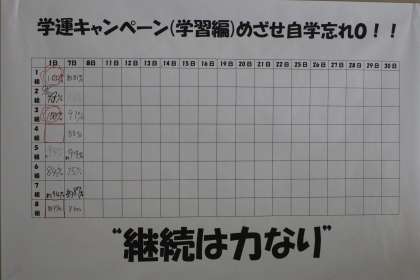 学運キャンペーン(学習編)めざせ自学忘れ0!!
1日 7日 8日 11日 12日 13日 14日 15日 18日 19日 20日 21日 22日 25日 26日 27日 28日 29日 30日
1組 100%
2組
3組 100% 91%
4組
5組
6組 89% 75%
7組
8組
"継続は力なり"